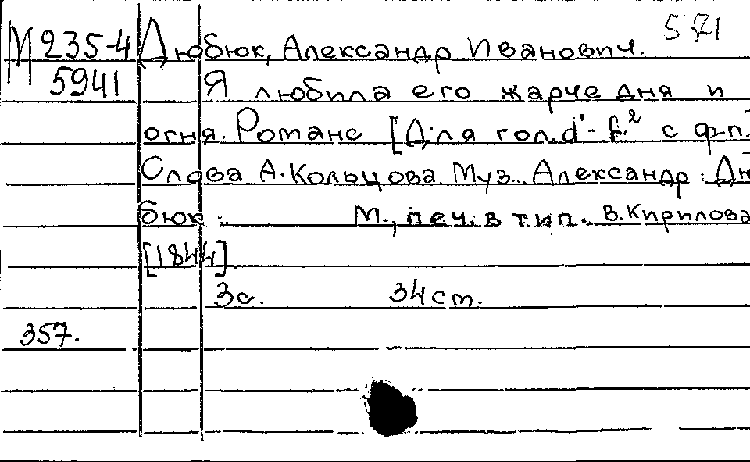 571
М 235-4 Дюбюк, Александр Иванович.
5941 Я любила его жарче дня и
огня. Романс [Для гол. d¹-f² с ф-п.
Слова А. Кольцова Муз. Александр. Дю
бюк. М., печ. в тип. В. Кирилова
[1844]
3с. 34 ст.
357.